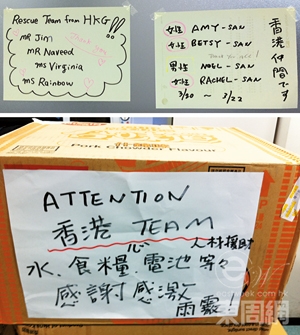 Rescue Team from HKG!!
mr Jim
MR Naveed
ms Virginia
ms Rainbow
女性 AMY-SAN
女性 BETSY-SAN
男性 NOEL-SAN
女性 RACHEL-SAN
3/20 ~ 3/22
香港仲間です
Pork Flavour
ATTENTION
香港 TEAM
心
人材援財
水、食糧、電池等々
感謝感激
雨霰!
東周網